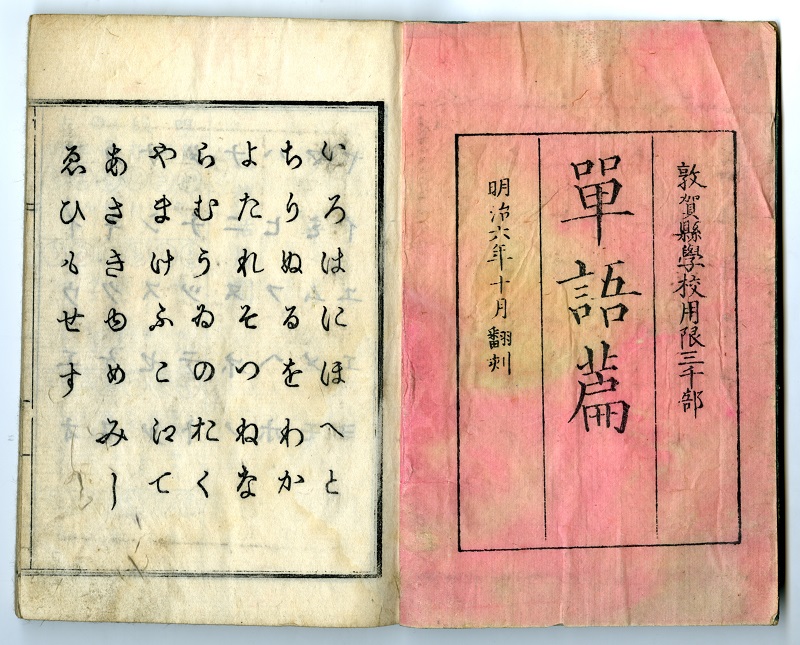 敦賀縣學校用限三千部
單語篇
明治六年十月翻刻
いろはにほへと
ちりぬるをわか
よたれそつねな
らむうゐのおく
やまけふこ江て
あさきゆめみし
ゑひもせす